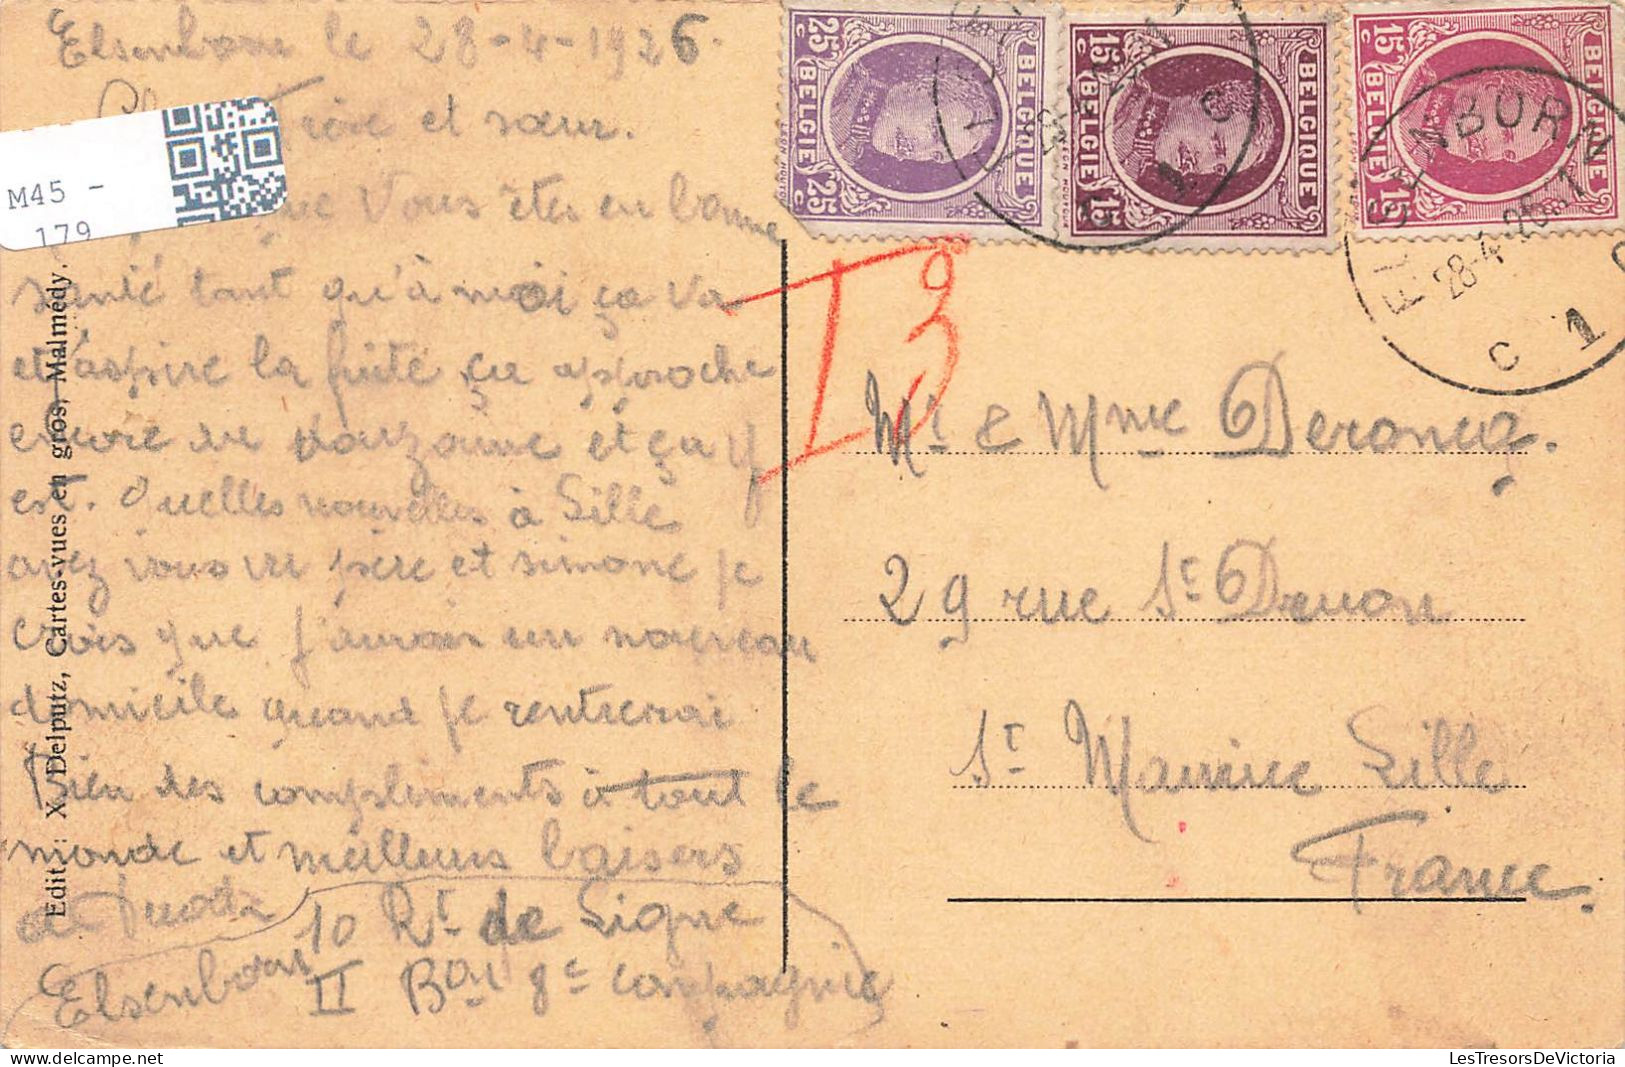 Elsenborn le 28-4-1926.
Frère et sœur.
que Vous êtes en bonne
santé tant qu'à moi ça va
et j'aspire la fuite ça approche
encore et ça y
est. Quelles nouvelles à Lille
avez vous vu père et simone je
crois que j'aurais un nouveau
domicile quand je rentrerai
Bien des compliments à tout le
monde et meilleurs baisers
10 Rt de Ligne
Elsenborn II Bon 8e compagnie
M45 -
179
Edit.: X. Delputz, Cartes-vues en gros, Malmédy.
25 c BELGIE BELGIQUE 25 c
15 c BELGIE BELGIQUE 15 c
15 c BELGIE BELGIQUE 15 c
C 1
ELSENBORN
28-4
C 1
T 3
Mr & Mme Deroncq.
29 rue St Druon
St Maurice Lille
France.
LesTresorsDeVictoria